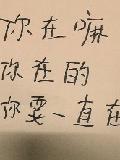 你在嘛
你在的
你要一直在